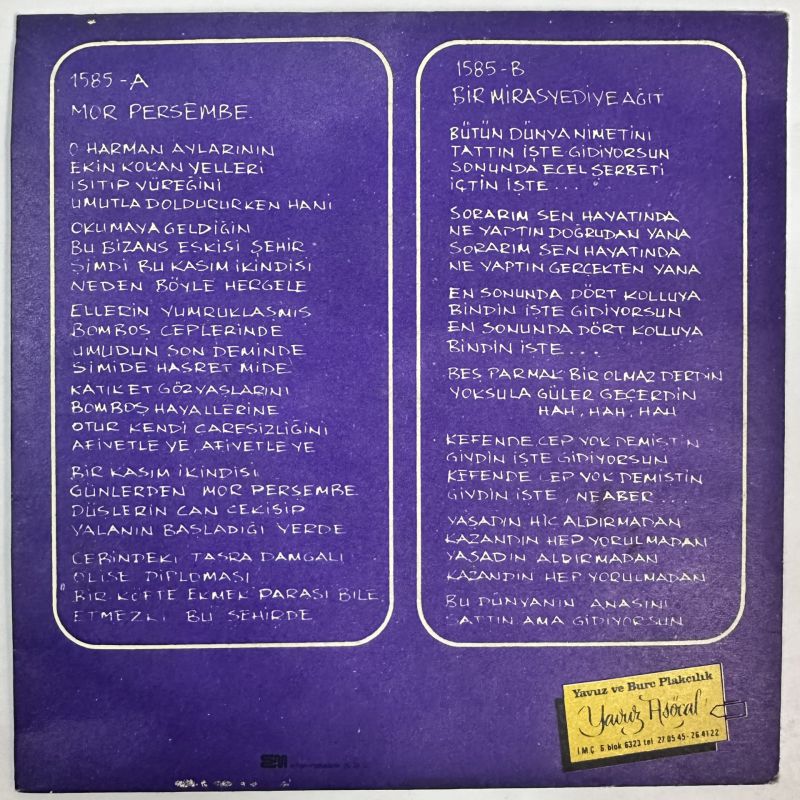 1585-A
MOR PERŞEMBE
O HARMAN AYLARININ
EKİN KOKAN YELLERİ
ISITIP YÜREĞİNİ
UMUTLA DOLDURURKEN HANİ
OKUMAYA GELDİĞİN
BU BİZANS ESKİSİ ŞEHİR
ŞİMDİ BU KASIM İKİNDİSİ
NEDEN BÖYLE HERGELE
ELLERİN YUMRUKLAŞMIŞ
BOMBOŞ CEPLERİNDE
UMUDUN SON DEMİNDE
SİMİDE HASRET MİDE
KATIK ET GÖZYAŞLARINI
BOMBOŞ HAYALLERİNE
OTUR KENDİ ÇARESİZLİĞİNİ
AFİYETLE YE, AFİYETLE YE
BİR KASIM İKİNDİSİ
GÜNLERDEN MOR PERŞEMBE
DÜŞLERİN CAN ÇEKİŞİP
YALANIN BAŞLADIĞI YERDE
CEBİNDEKİ TAŞRA DAMGALI
O LİSE DİPLOMASI
BİR KÖFTE EKMEK PARASI BİLE
ETMEZKİ BU ŞEHİRDE
1585-B
BİR MİRASYEDİYE AĞIT
BÜTÜN DÜNYA NİMETİNİ
TATTIN İŞTE GİDİYORSUN
SONUNDA ECEL ŞERBETİ
İÇTİN İŞTE...
SORARIM SEN HAYATINDA
NE YAPTIN DOĞRUDAN YANA
SORARIM SEN HAYATINDA
NE YAPTIN GERÇEKTEN YANA
EN SONUNDA DÖRT KOLLUYA
BİNDİN İŞTE GİDİYORSUN
EN SONUNDA DÖRT KOLLUYA
BİNDİN İŞTE...
BEŞ PARMAK BİR OLMAZ DERDİN
YOKSULA GÜLER GEÇERDİN
HAH, HAH, HAH
KEFENDE CEP YOK DEMİŞTİN
GİYDİN İŞTE GİDİYORSUN
KEFENDE CEP YOK DEMİŞTİN
GİYDİN İŞTE, NEABER...
YAŞADIN HİÇ ALDIRMADAN
KAZANDIN HEP YORULMADAN
YAŞADIN ALDIRMADAN
KAZANDIN HEP YORULMADAN
BU DÜNYANIN ANASINI
SATTIN AMA GİDİYORSUN
Yavuz ve Burç Plakçılık
Yavuz Asöcal
İ.M.Ç 6. blok 6323 tel 27 05 45 - 26 41 22